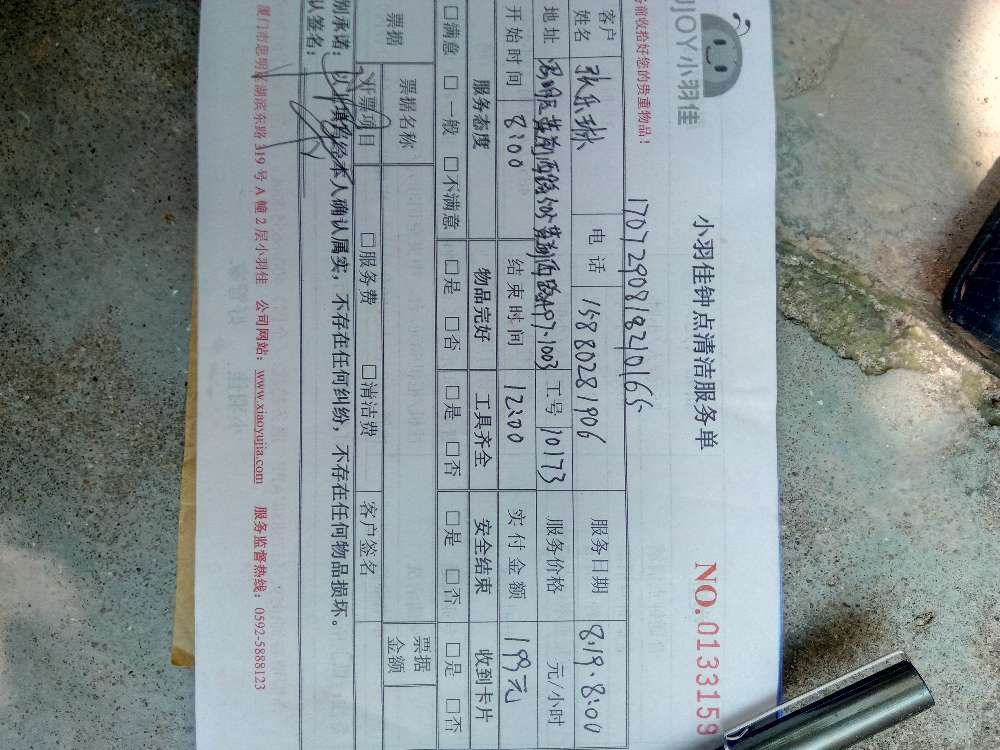 JOY小羽佳
小羽佳钟点清洁服务单
NO.0133159
前收拾好您的贵重物品！
17072908182101655
客户姓名 电话 15880281906 服务日期 8.19.8:00
地址 工号 10173 服务价格 元/小时
开始时间 8:00 结束时间 12:00 实付金额 199元
服务态度 物品完好 工具齐全 安全结束 收到卡片
□满意 □一般 □不满意 □是 □否 □是 □否 □是 □否 □是 □否
票据 票据名称 票据金额
开票项目 □服务费 □清洁费 客户签名
别承诺：以上填写经本人确认属实，不存在任何纠纷，不存在任何物品损坏。
认签名：
厦门市思明区湖滨东路319号A幢2层小羽佳 公司网站：www.xiaoyujia.com 服务监督热线：0592-5888123